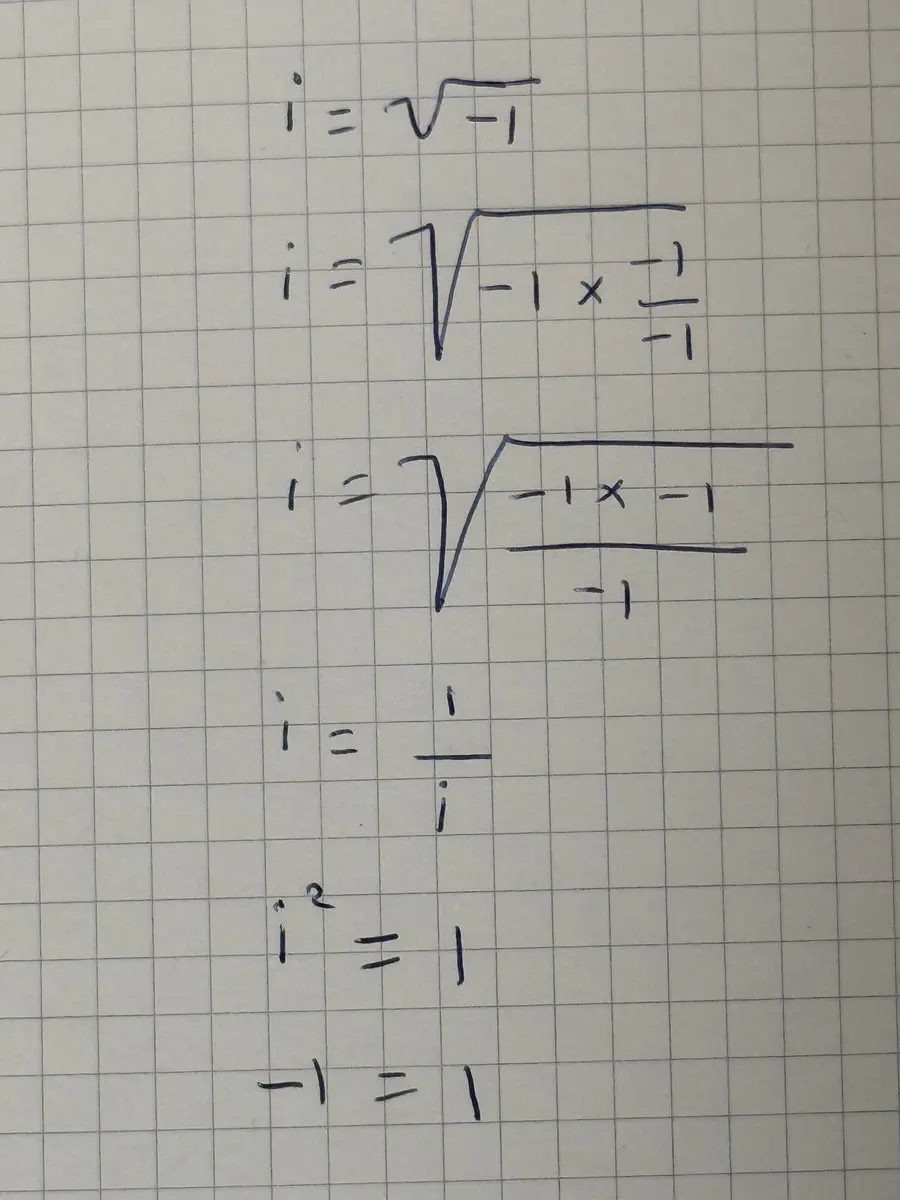 i = √(-1)
i = √(-1 × (-1)/(-1))
i = √((-1 × -1)/(-1))
i = 1/i
i² = 1
-1 = 1